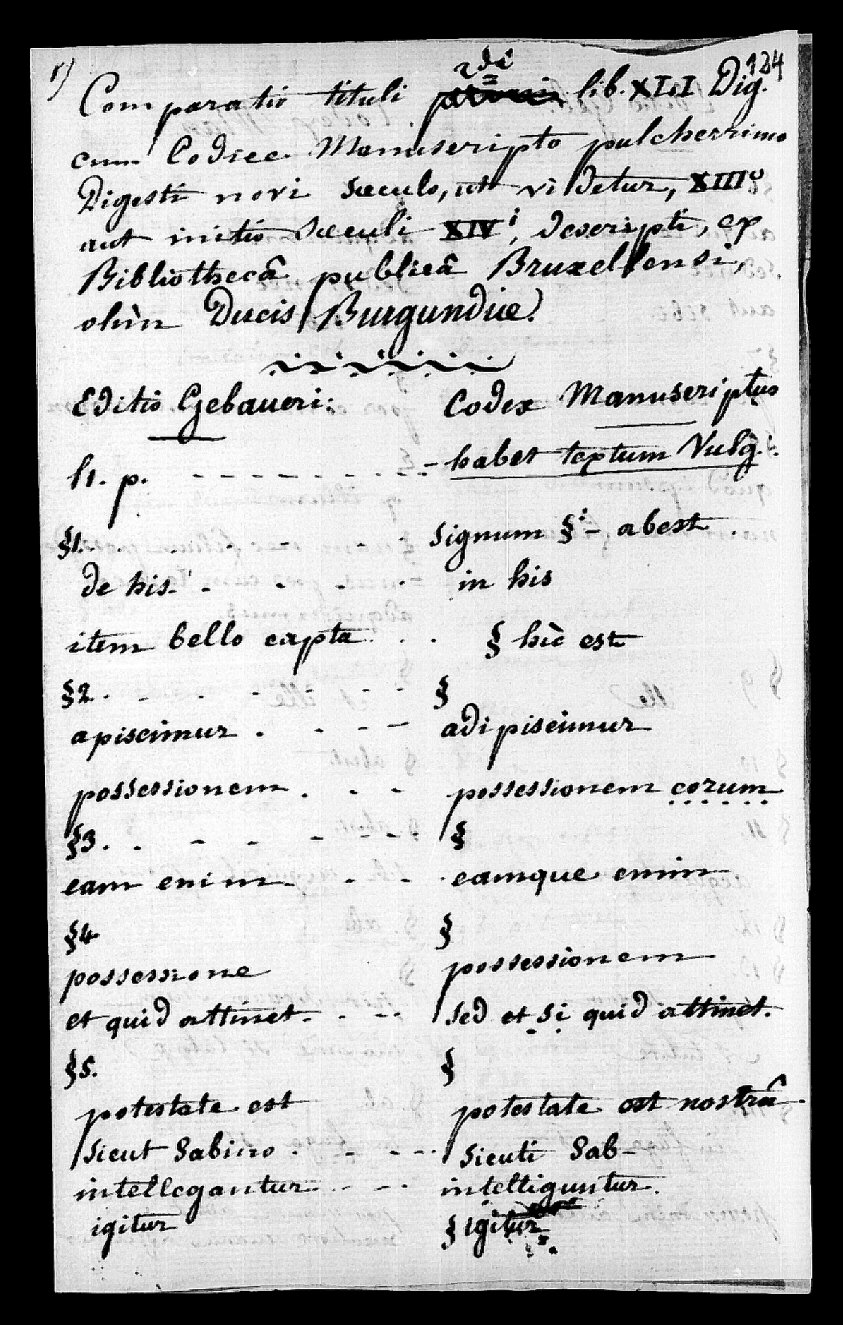 1)
124
Comparatio tituli 2di lib. XLI Dig.
cum Codice Manuscripto pulcherrimo
Digesti novi sæculo, ut videtur, XIIIo
aut initio sæculi XIVi, descripti, ex
Bibliothecâ publicâ Bruxellensi,
olim Ducis Burgundiæ.
Editio Gebaueri: Codex Manuscriptus
l1. p. - - - - - - - - habet textum Vulg.:
§1. - - - - signum §i- abest.
de his. - - - - in his
item bello capta . . § hìc est
§2. - - - - - - §
apiscimur . - - - adipiscimur
possessionem . - - possessionem eorum
§3. - - - - - - §
eam enim - - - eamque enim
§4 §
possessione possessionem
et quid attinet. - - - sed et si quid attinet.
§5. §
potestate est potestate est nostrâ
sicut Sabino . - - - - sicuti Sab-
intellegantur - - - intelliguntur.
igitur § igitur